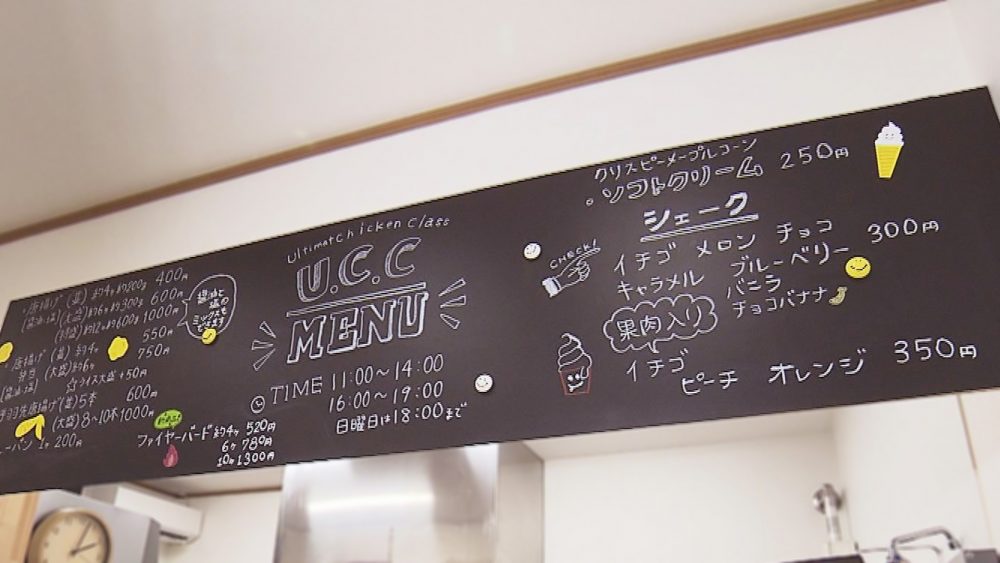 唐揚げ(並)約4ヶ約200g 400円
(醤油・塩)(大盛)約6ヶ約300g 600円
(特盛)約12ヶ約600g 1000円
醤油と
塩の
ミックスも
できます
・唐揚げ(並)約4ヶ 550円
弁当(大盛)約6ヶ 750円
(醤油・塩) ☆ライス大盛+50円
手羽先唐揚げ(並)5本 600円
(大盛)8~10本1000円
1ヶ200円
ファイヤーバード約4ヶ 520円
6ヶ 780円
10ヶ1300円
Ultimatchicken Class
U.C.C
MENU
TIME 11:00~14:00
16:00~19:00
日曜日は18:00まで
クリスピーメープルコーン
・ソフトクリーム 250円
シェーク
CHECK!
イチゴ メロン チョコ 300円
キャラメル ブルーベリー
バニラ
チョコバナナ
果肉入り
イチゴ
ピーチ オレンジ 350円